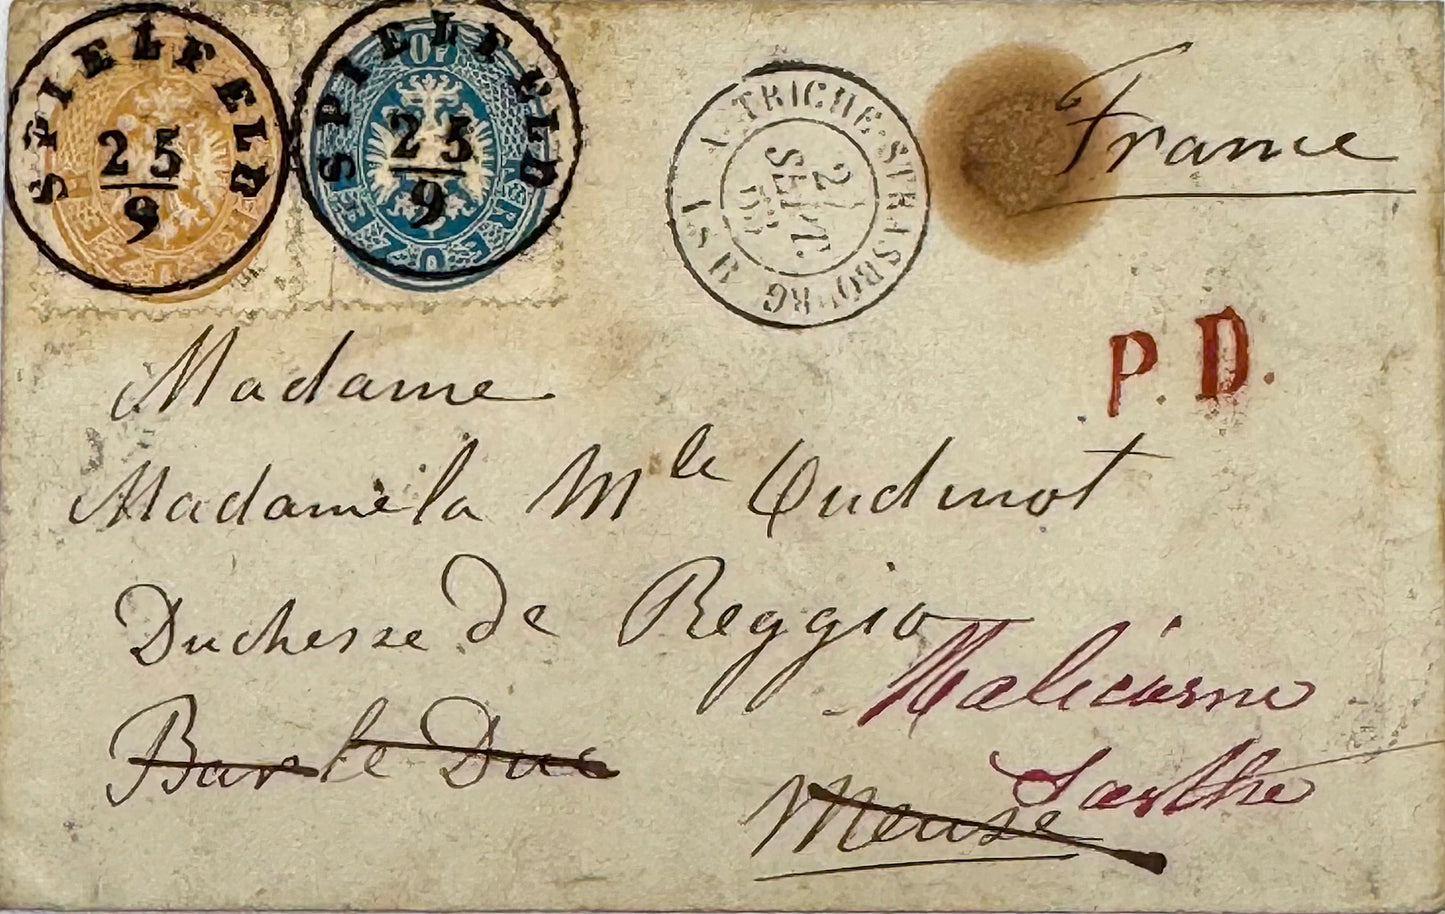 SPIELFELD
25
9
SPIELFELD
25
9
10
AUTRICHE-STRASBOURG
SEPT.
France
P.D.
Madame
Madame la Mle Oudinot
Duchesse de Reggio
Malicorne
Bar le Duc
Sarthe
Meuse